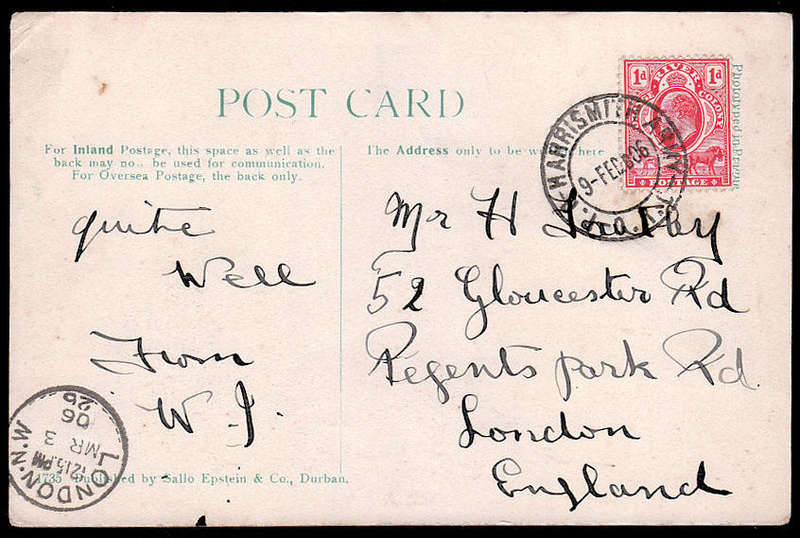 POST CARD
For Inland Postage, this space as well as the
back may no be used for communication.
For Oversea Postage, the back only.
The Address only to be here
1d RIVER 1d
COLONY
POSTAGE
Phototyped in
HARRISMITH
9-FEB 06
quite
Well
From
W J.
Mr H
52 Gloucester Rd
Regents park Rd
London
England
LONDON.N.W
12.15.PM
MR 3
06
26
Published by Sallo Epstein & Co., Durban.